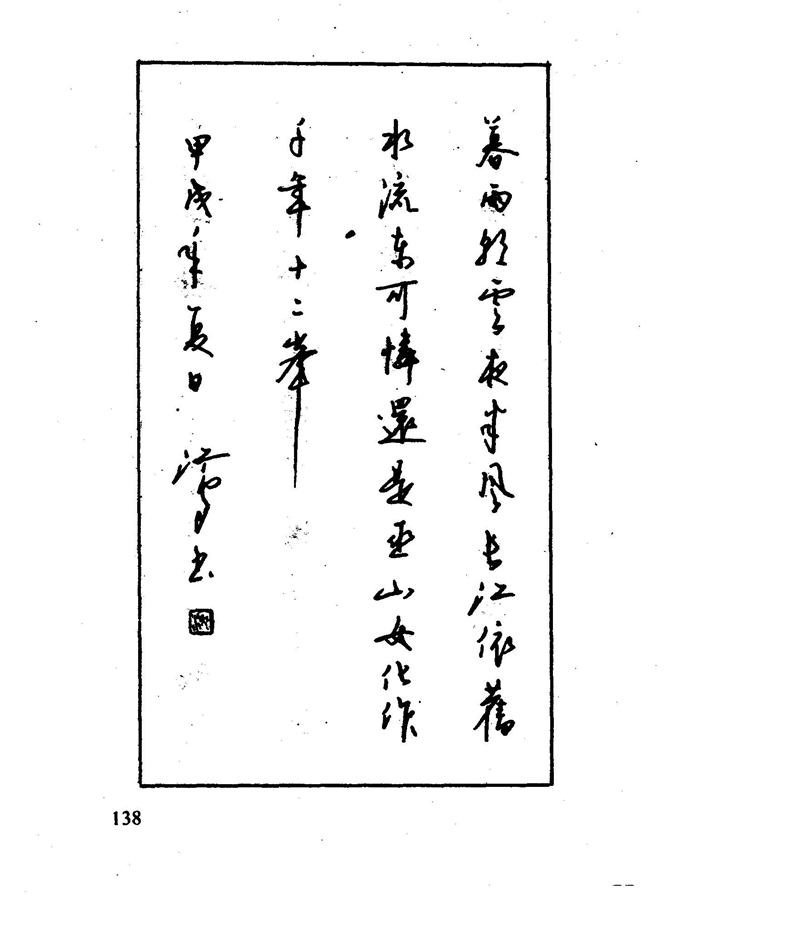 暮雨朝雲夜半風长江依舊
水流东可憐還是巫山女化作
千年十二峯
甲戌年夏日 江雪书
138